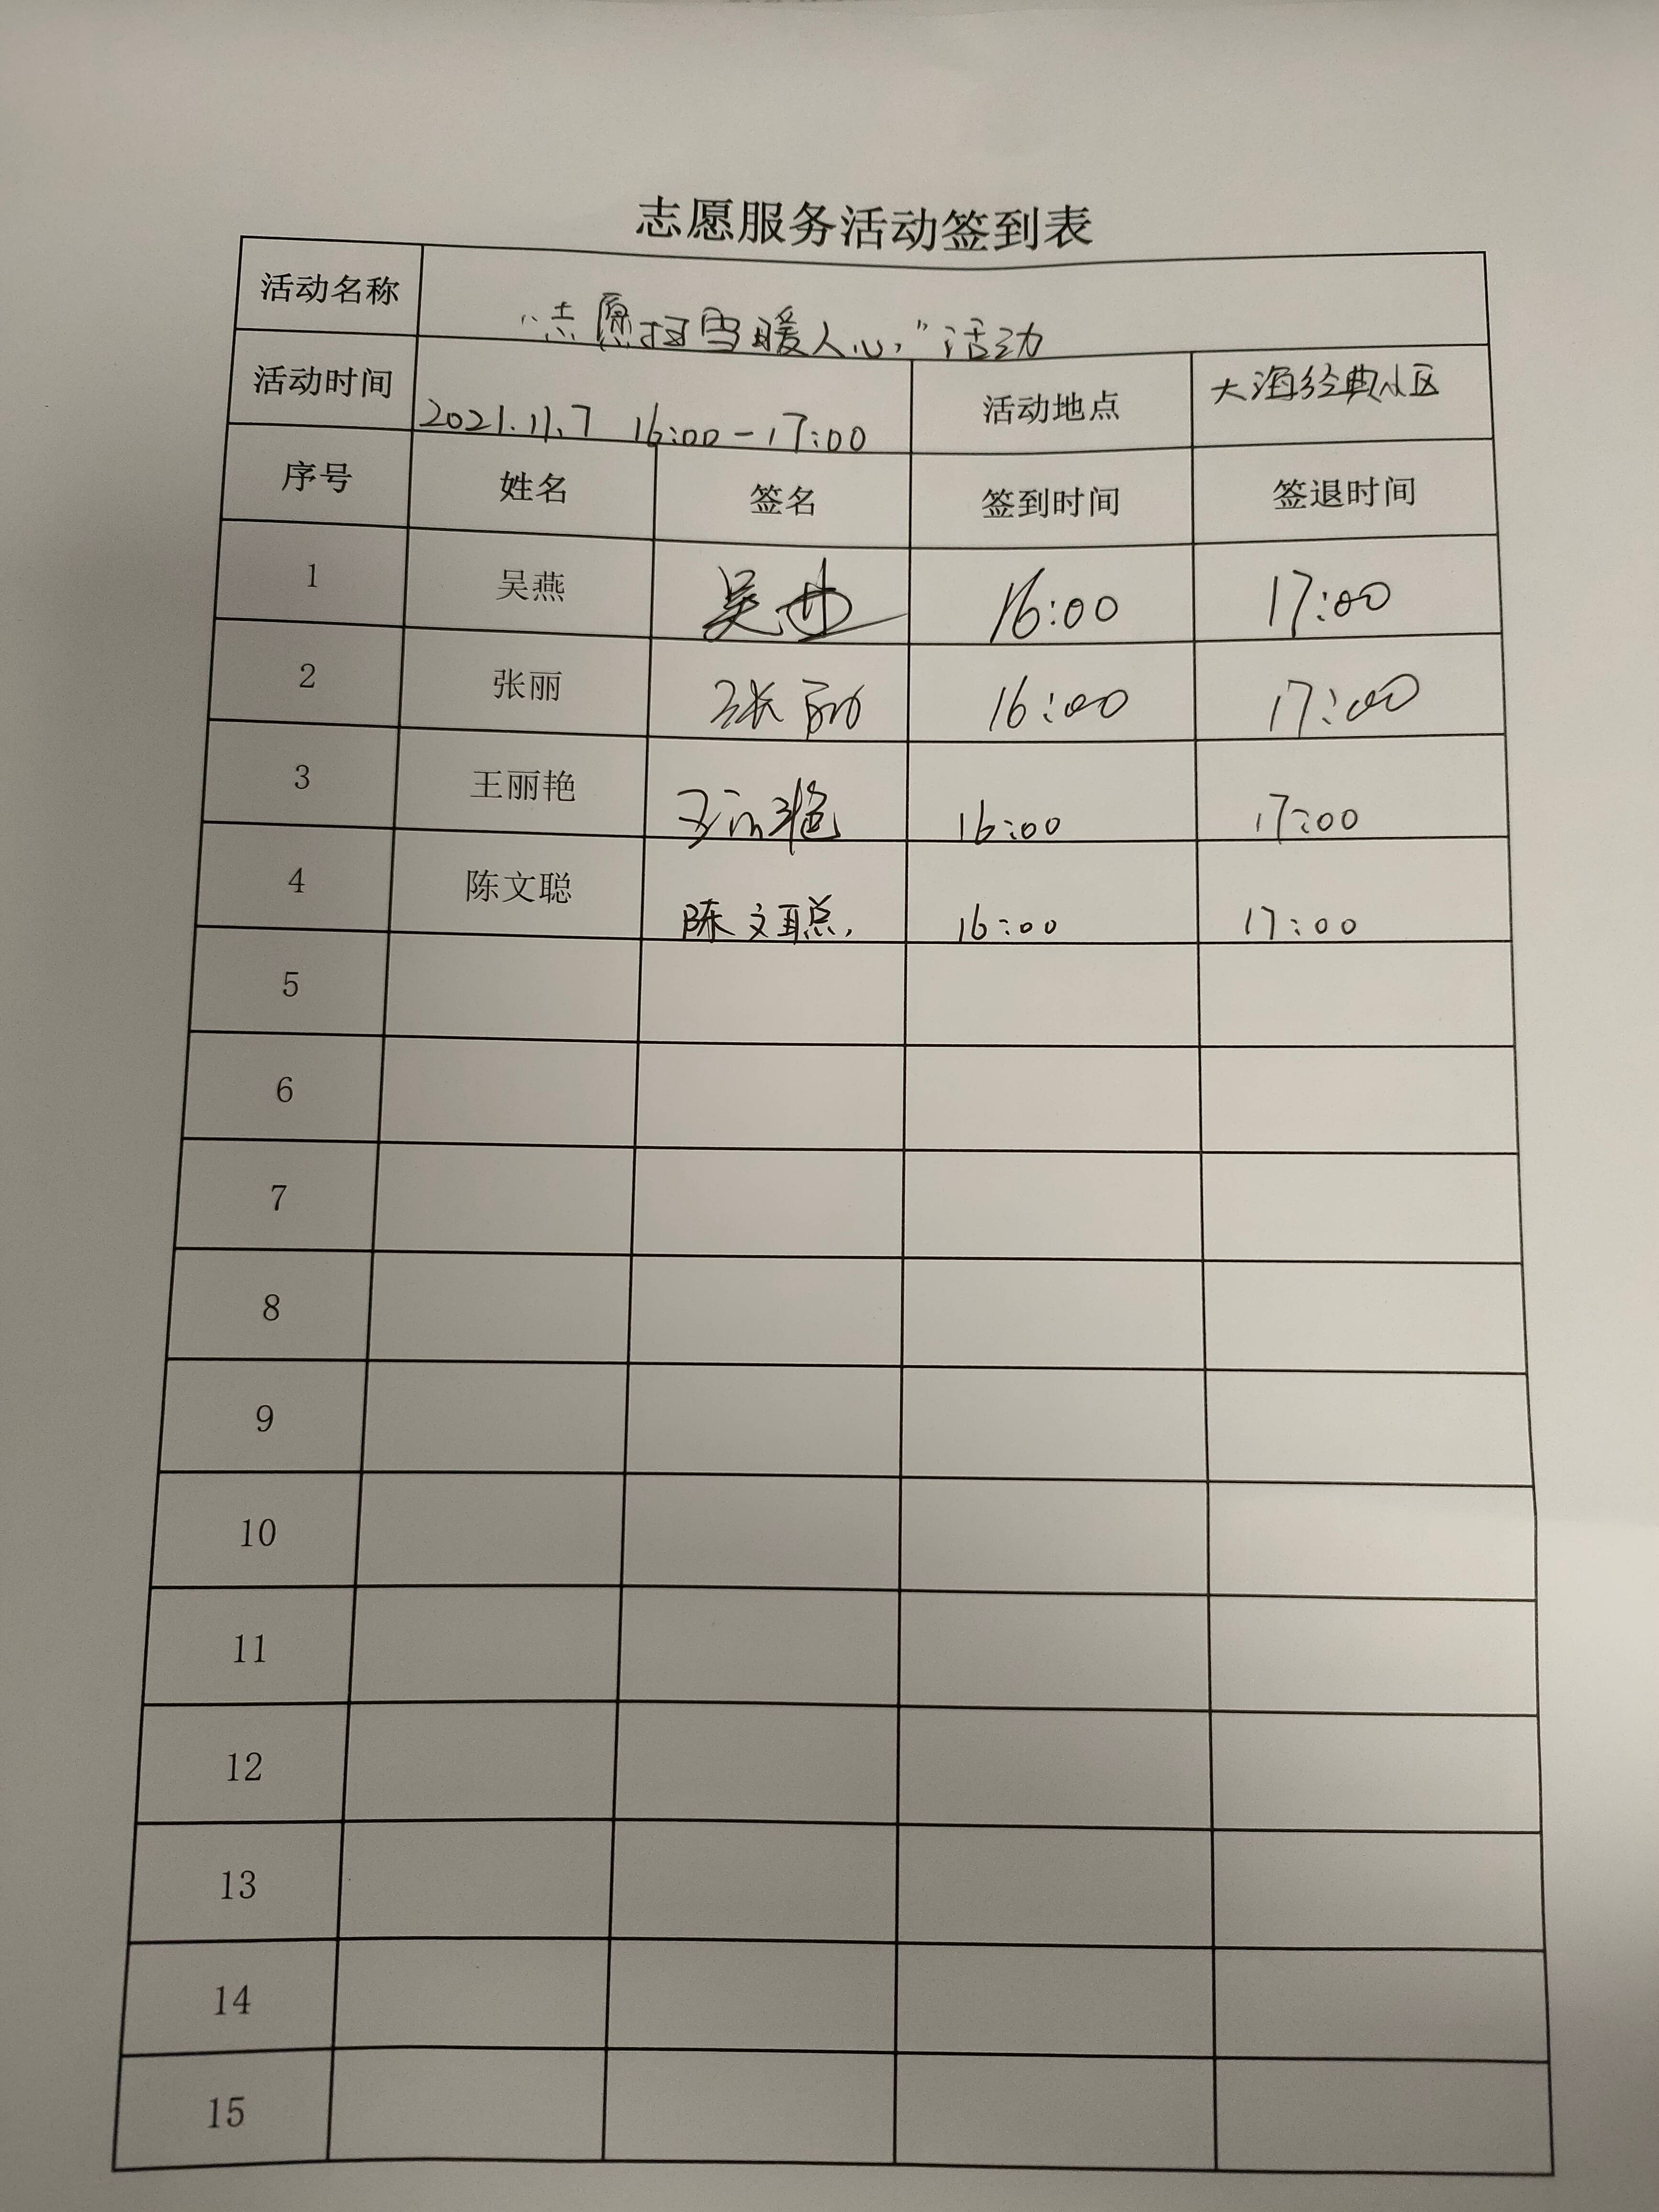 志愿服务活动签到表
活动名称 “志愿扫雪暖人心,”活动
活动时间 2021.11.7 16:00-17:00 活动地点 大海经典小区
序号 姓名 签名 签到时间 签退时间
1 吴燕 吴燕 16:00 17:00
2 张丽 张丽 16:00 17:00
3 王丽艳 王丽艳 16:00 17:00
4 陈文聪 陈文聪, 16:00 17:00
5
6
7
8
9
10
11
12
13
14
15